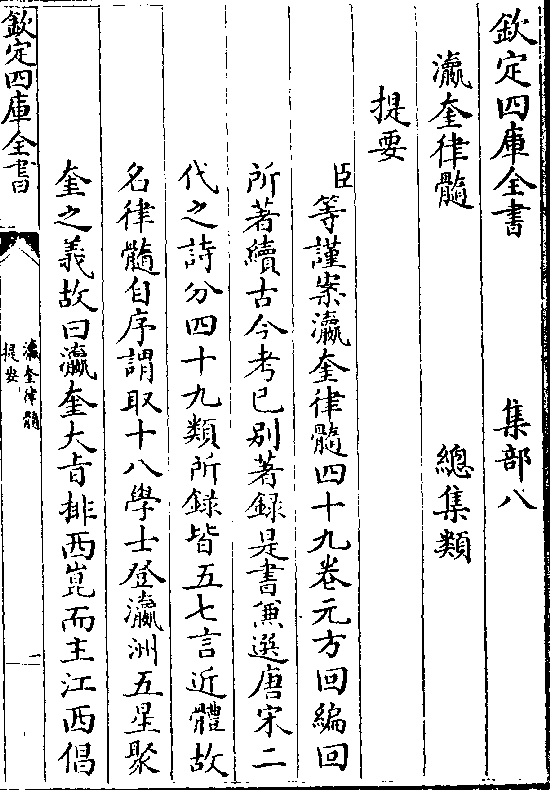 欽定四庫全書　集部八
瀛奎律髓　總集類
提要
臣等謹案瀛奎律髓四十九卷元方回編回
所著續古今考已別著録是書兼選唐宋二
代之詩分四十九類所録皆五七言近體故
名律髓自序謂取十八學士登瀛洲五星聚
奎之義故曰瀛奎大㫖排西崑而主江西倡
欽定四庫全書
瀛奎律髓
提要
一